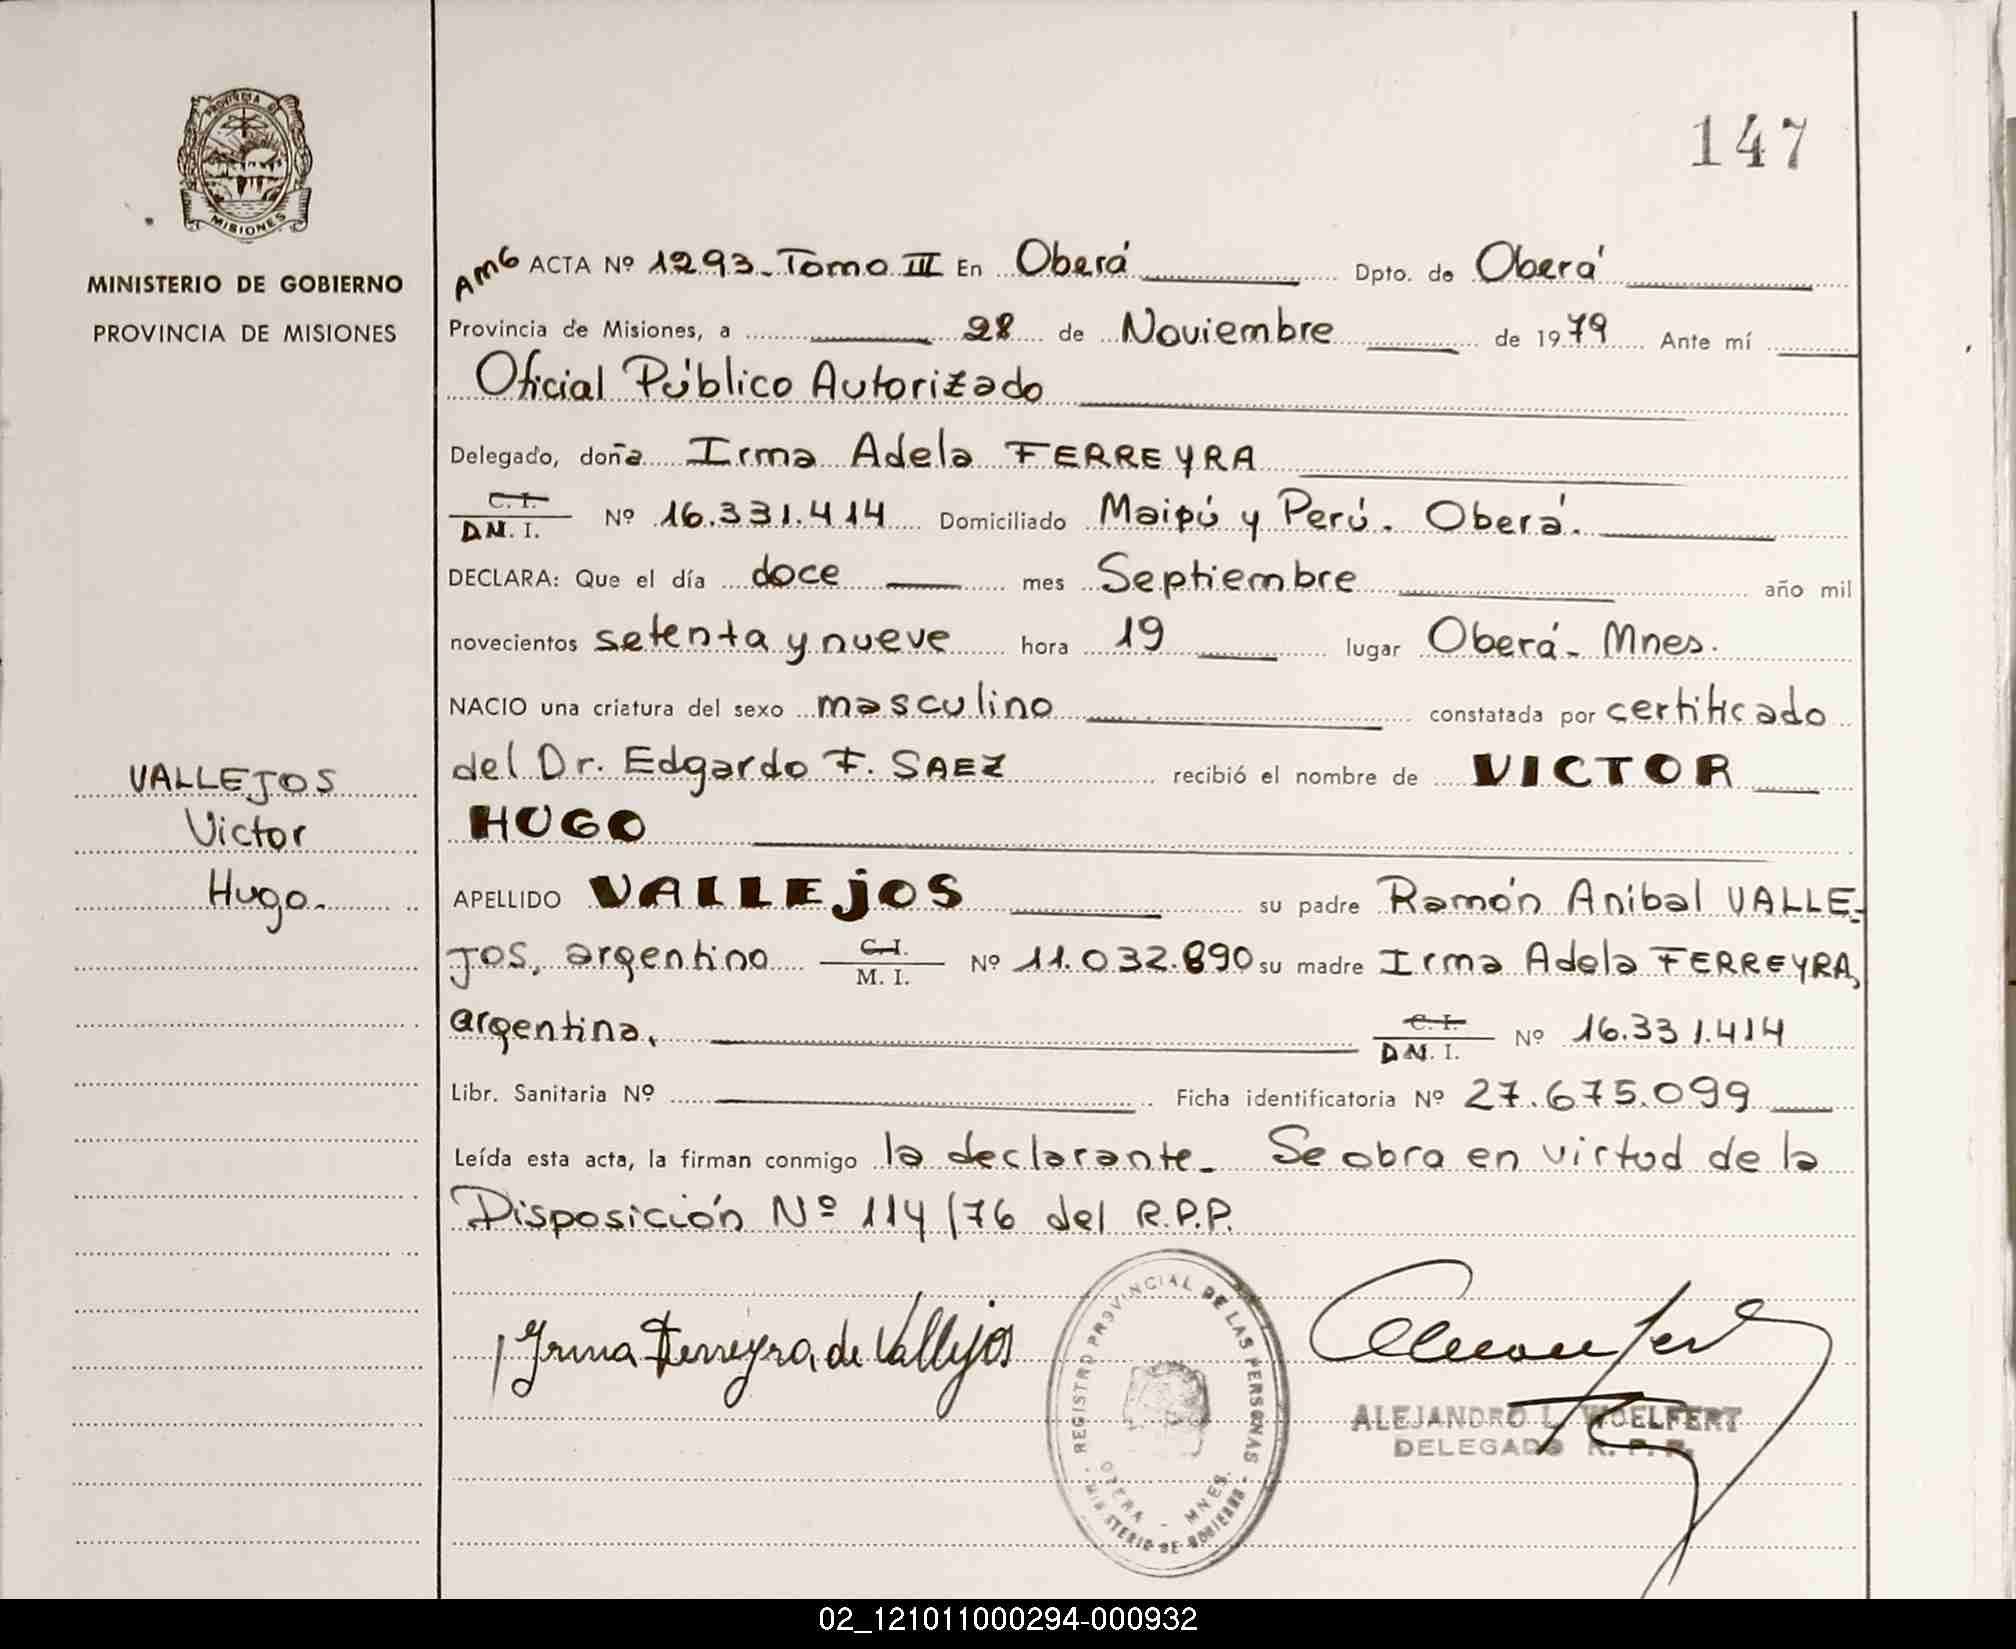 147
PROVINCIA DE
MISIONES
MINISTERIO DE GOBIERNO
PROVINCIA DE MISIONES
AMG ACTA Nº 1293_ Tomo III En Oberá Dpto. de Oberá
Provincia de Misiones, a 28 de Noviembre de 1979 Ante mí
Oficial Público Autorizado
Delegado, doña Irma Adela FERREYRA
C. I.
D.N. I. Nº 16.331.414 Domiciliado Maipú y Perú. Oberá.
DECLARA: Que el día doce mes Septiembre año mil
novecientos setenta y nueve hora 19 lugar Oberá_ Mnes.
NACIO una criatura del sexo masculino constatada por certificado
del Dr. Edgardo F. SAEZ recibió el nombre de VICTOR
HUGO
VALLEJOS
Victor
Hugo.
APELLIDO VALLEJOS su padre Ramón Anibal VALLE-
JOS, argentino C. I.
M. I. Nº 11.032.890 su madre Irma Adela FERREYRA,
argentina, C. I.
D.N. I. Nº 16.331.414
Libr. Sanitaria Nº Ficha identificatoria Nº 27.675.099
Leída esta acta, la firman conmigo la declarante_ Se obra en virtud de la
Disposición Nº 114/76 del R.P.P.
Irma Ferreyra de Vallejos
REGISTRO PROVINCIAL DE LAS PERSONAS
OBERA - MNES.
MINISTERIO DE GOBIERNO
ALEJANDRO L. WOELFERT
DELEGADO R. P. P.
02_121011000294-000932